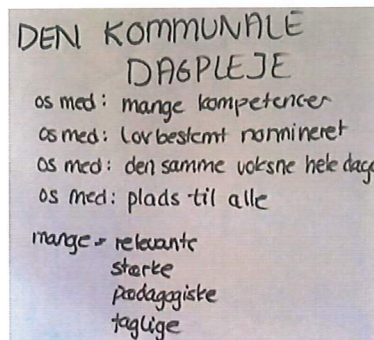 DEN KOMMUNALE
DAGPLEJE
os med: mange kompetencer
os med: Lovbestemt normineret
os med: den samme voksne hele dage
os med: plads til alle
mange = relevante
stærke
pædagogiske
faglige